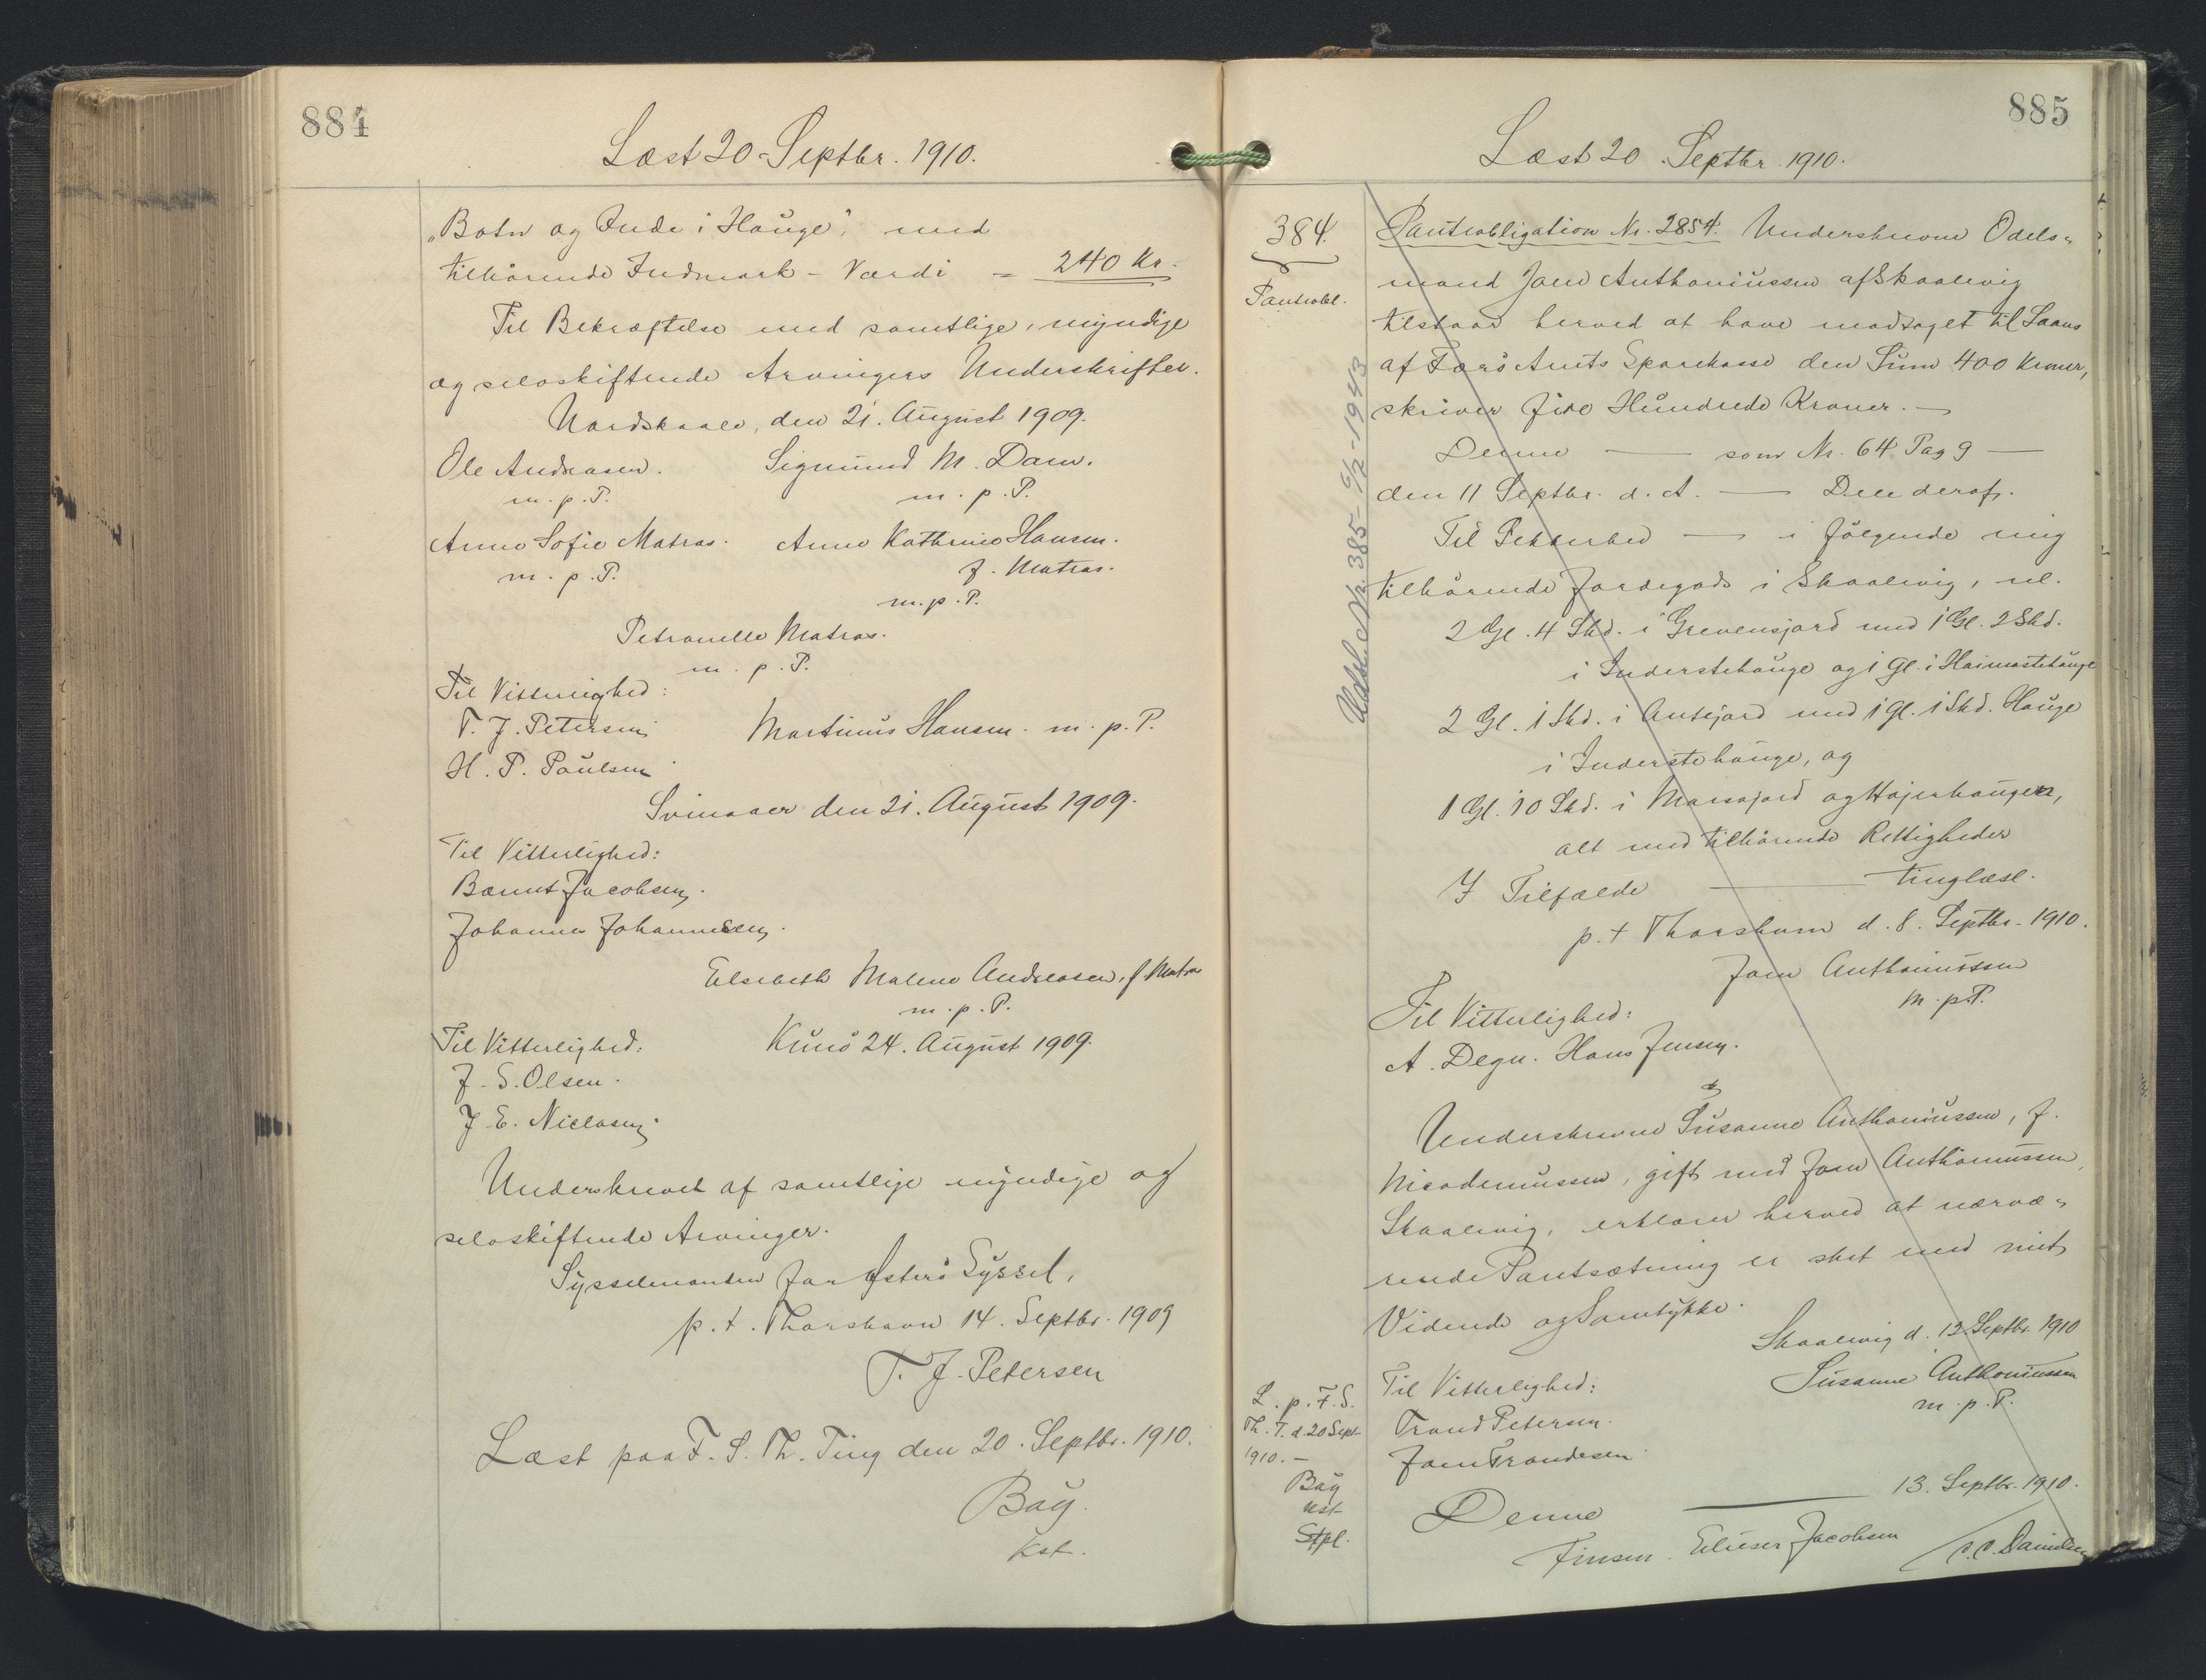 884
Læst 20 Septbr. 1910.
"Botn og Inde i Hauge", med
tilhörende Indmark - Værdi = 240 Kr.
Til Bekræftelse med samtlige, myndige
og selvskiftende Arvingers Underskrifter.
Nordskaale, den 21. August 1909.
Ole Andreasen. Sigmund M. Dam.
m. p. P. m. p. P.
Anna Sofie Matras. Anne Kathrine Hansen.
m. p. P. f. Matras.
m. p. P.
Petronelle Matras.
m. p. P.
Til Vitterlighed:
T. J. Petersen Martinus Hansen. m. p. P.
H. P. Poulsen
Svinaaer den 21. August 1909.
Til Vitterlighed:
Bærent Jacobsen.
Johannes Johannesen.
Elsebeth Malene Andreasen, f. Matras
m. p. P.
Til Vitterlighed: Kunö 24. August 1909.
J. S. Olsen.
J. E. Niclasen.
Underskrevet af samtlige myndige og
selvskiftende Arvinger.
Sysselmanden for Österö Syssel,
p. t. Thorshavn 14. Septbr. 1909
T. J. Petersen
Læst paa F. S. Th. Ting den 20. Septbr. 1910.
Bay.
Kst.
885
Læst 20 Septbr. 1910.
384.
Pantobl.
Pantobligation Nr. 2854. Underskrevne Odels-
mand Joen Anthoniussen af Skaalevig
tilstaar herved at have modtaget til Laans
af Færö Amts Sparekasse den Sum 400 Kroner,
skriver fire Hundrede Kroner. —
Denne — som Nr. 64 Pag 9 —
den 11 Septbr. d. A. — Dele deraf.
Til Sikkerhed — i følgende mig
tilhörende Jordegods i Skaalevig, nl.
2 Gl. 4 Skd. i Grevensjord med 1 Gl. 2 Skd.
i Inderstehauge og 1 Gl. i Haimastehauge
2 Gl. 1 Skd. i Antisjord med 1 Gl. 1 Skd. Hauge
i Inderstehauge, og
1 Gl. 10 Skd. i Morsajord og Højerhaugen,
alt med tilhörende Rettigheder
I Tilfælde — tinglæst.
p. t Thorshavn d. 8. Septbr. 1910.
Joen Anthoniussen
m. p. P.
Til Vitterlighed:
A. Degn. Hans Jensen.
Underskrevne Susanne Anthoniussen, f.
Nicodemussen, gift med Joen Anthoniussen,
Skaalevig, erklærer herved at nærvæ-
rende Pantsætning er sket med mit
Vidende og Samtykke.
Skaalevig d. 12 Septbr. 1910
Til Vitterlighed: Susanne Anthoniussen
Trond Petersen. m. p. P.
Joen Trondesen
13. Septbr. 1910.
Denne —
Finsen. Elieser Jacobsen C. C. Danielsen
L. p. F. S.
Th. T. d. 20 Sept.
1910. —
Bay
Kst
Stpl.
Udsl. Nr. 385 - 6/2 - 1943